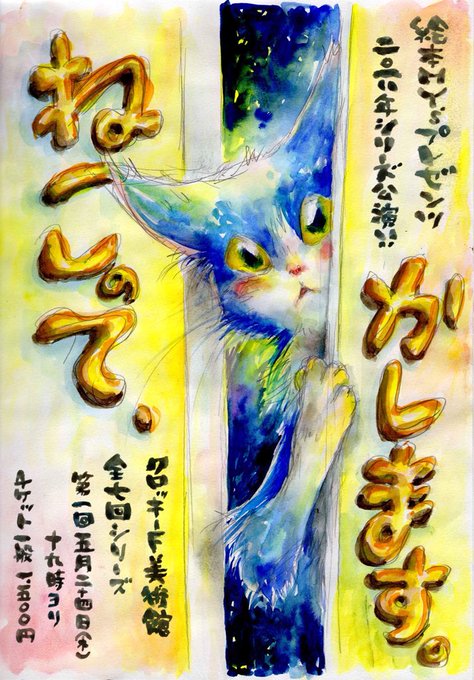 絵本MY'sプレゼンツ
二〇一八年シリーズ公演!!
かします。
ねこのて、
クロッキーF美術館
全七回シリーズ
第一回五月二十四日(木)
十九時ヨリ
チケット一般一、五〇〇円